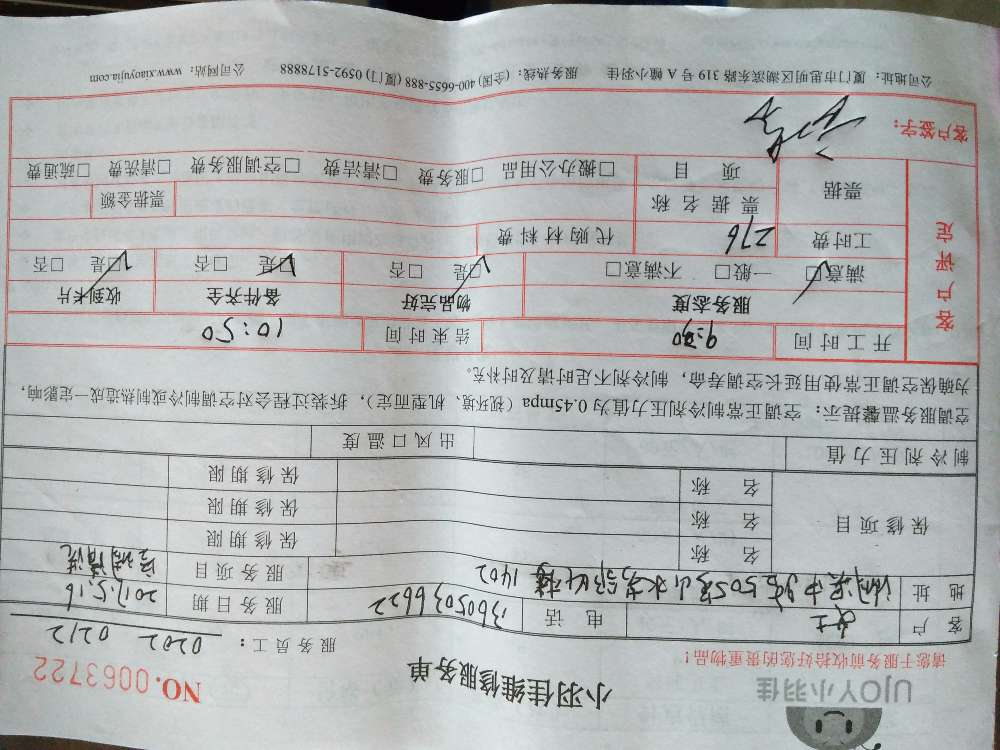 UJOY小羽佳
小羽佳维修服务单
NO.0063722
请您于服务前收拾好您的贵重物品!
服务员工: 0202 0212
客户 女士 电话 13605036622 服务日期 2017.5.16
地址 1402 服务项目 空调清洗
保修项目 名称 保修期限
名称 保修期限
名称 保修期限
制冷剂压力值 出风口温度
空调服务温馨提示: 空调正常制冷剂压力值为0.45mpa (视环境、机型而定), 拆装过程会对空调制冷或制热造成一定影响,
为确保空调正常使用延长空调寿命, 制冷剂不足时请及时补充。
客户评定
开工时间 9:30 结束时间 10:50
服务态度 物品完好 备件齐全 收到卡片
满意☑ 一般□ 不满意□ ☑是 □否 ☑是 □否 ☑是 □否
工时费 276 代购材料费
票据 票据名称 票据金额
项目 □搬办公用品 □服务费 □清洁费 □空调服务费 □清洗费 □疏通费
客户签字:
公司地址: 厦门市思明区湖滨东路319号A幢小羽佳 服务热线: (全国) 400-6655-888 (厦门) 0592-5178888 公司网站: www.xiaoyujia.com